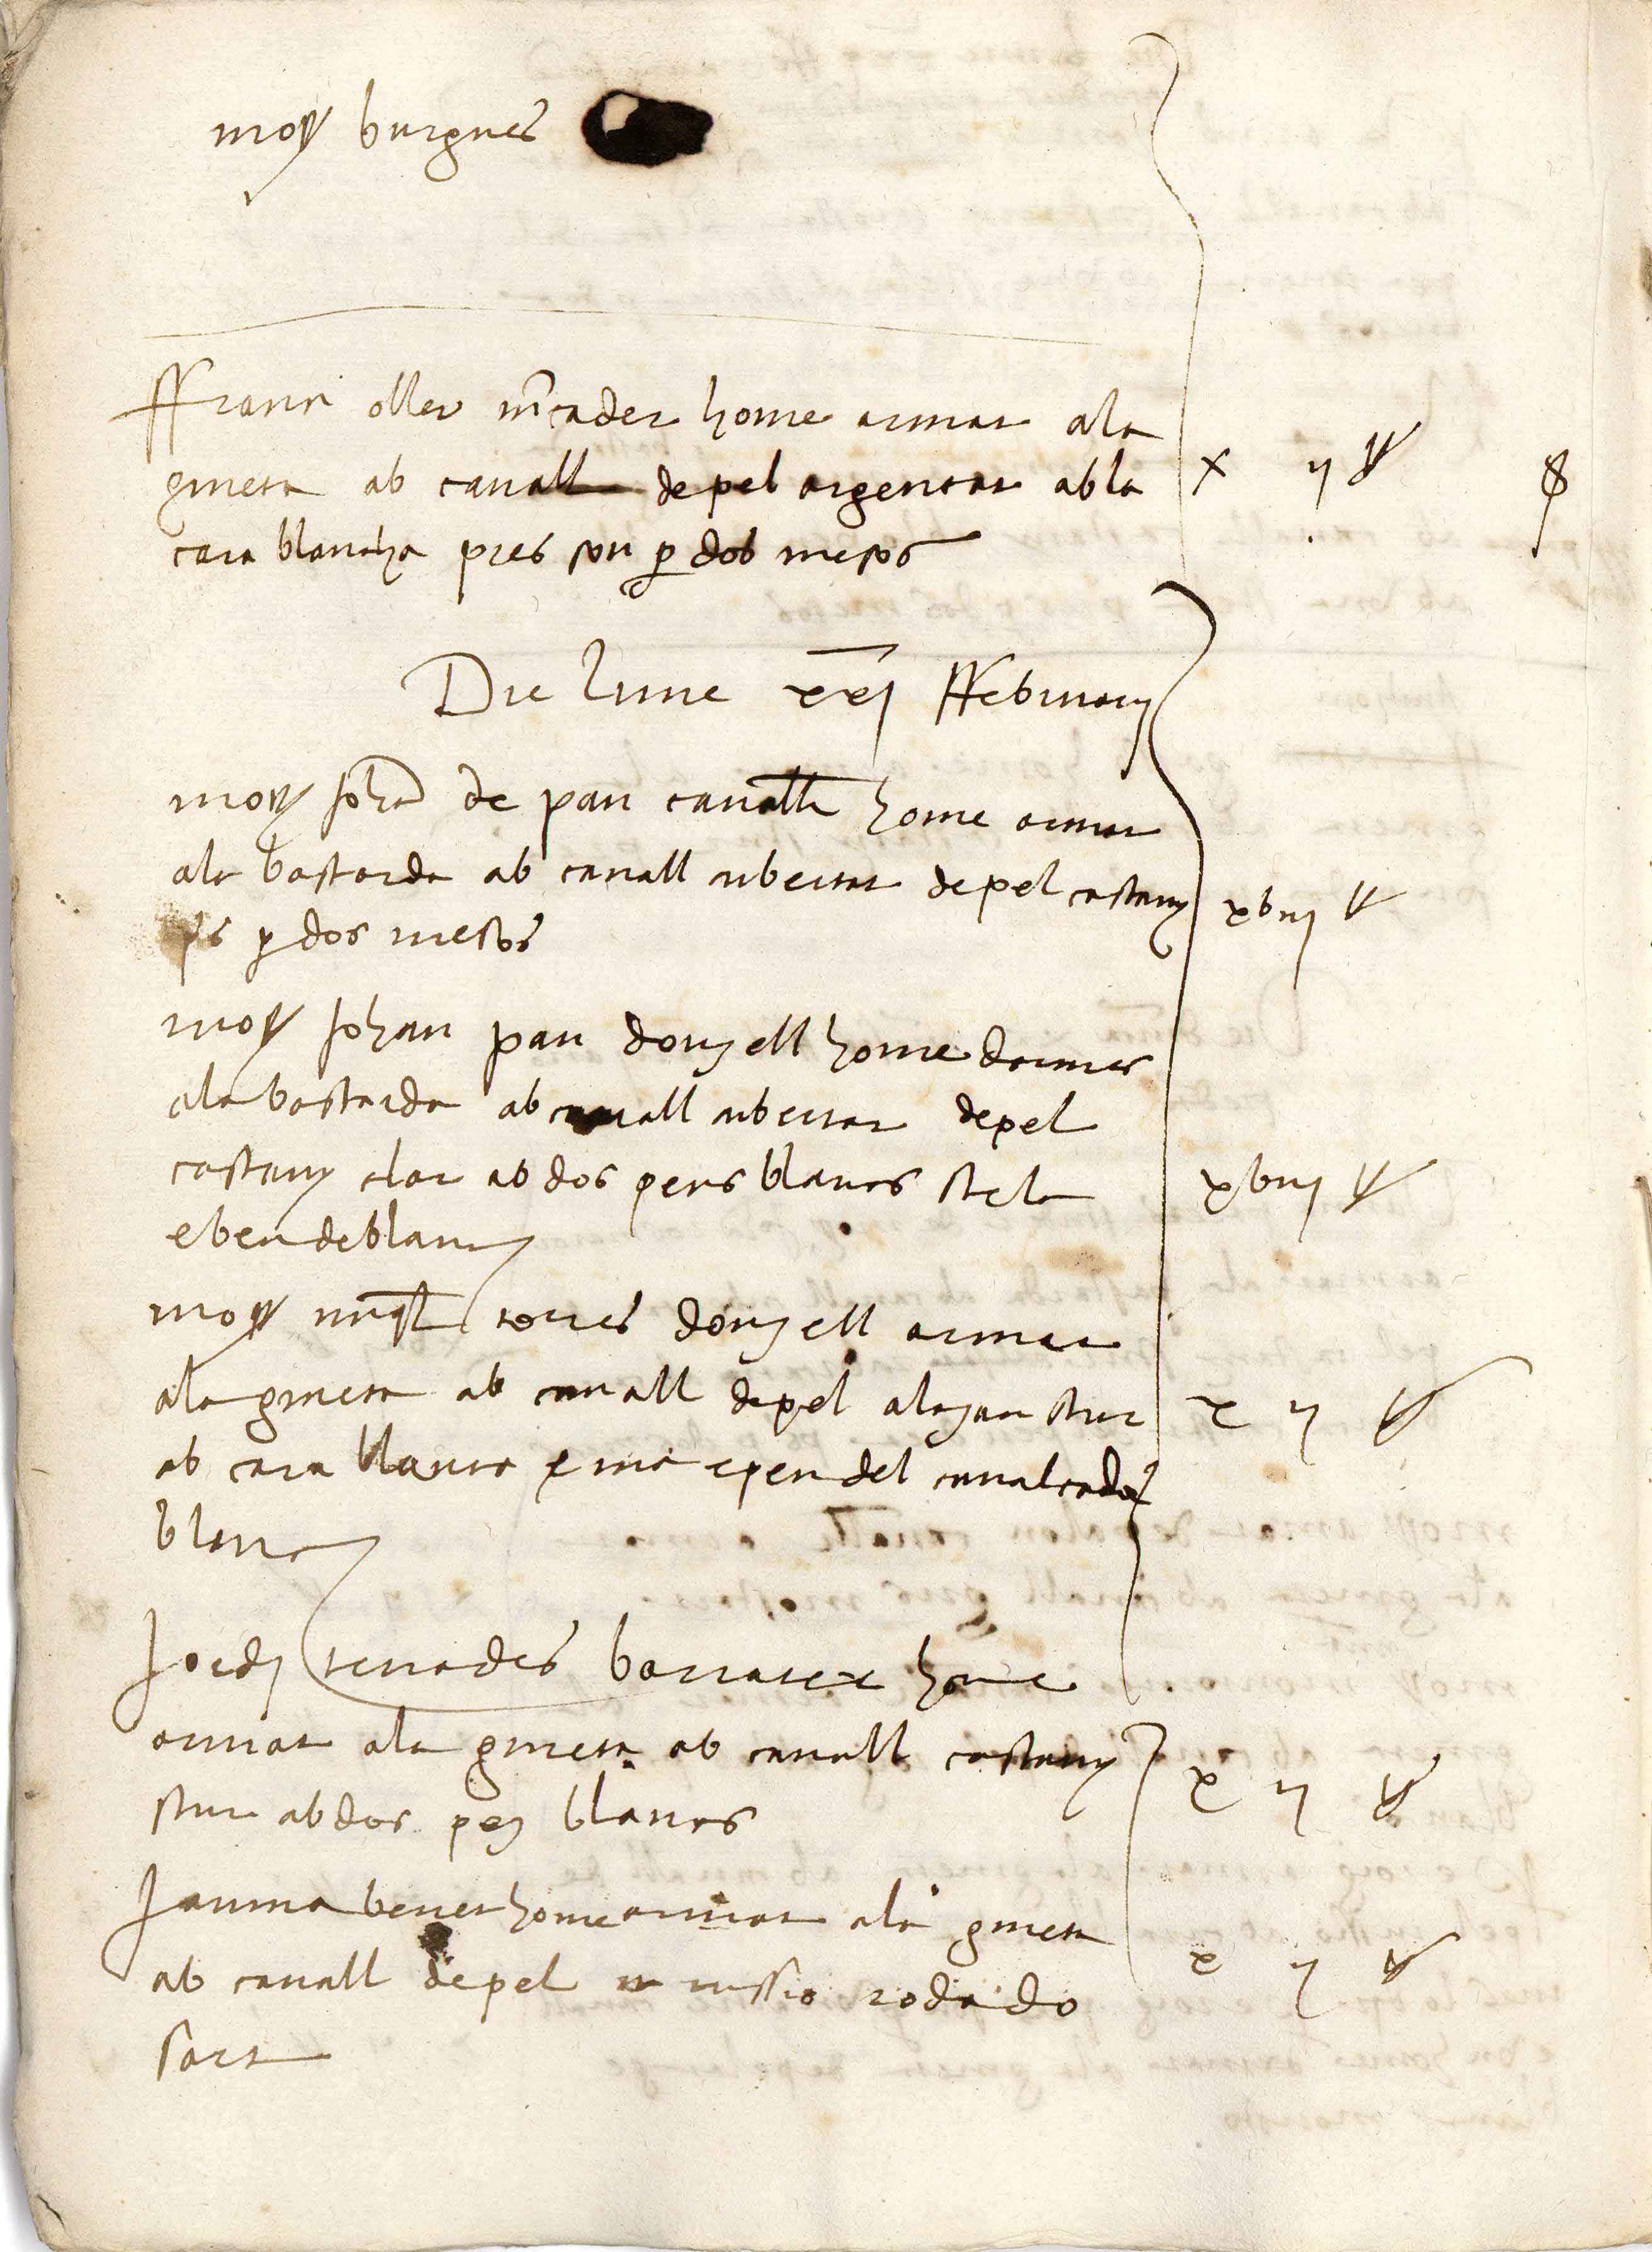 mossen burgues
ffranci oller mercader home armat ala
gineta ab cavall de pel argentat ab la
cara blancha pres sou per dos mesos
x ij
Die lune xxj ffebruarij
mossen Johan de pau cavaller home armat
ala bastarda ab cavall cubertat de pel castany
ps per dos mesos
xviij
mossen Johan pau donzell home darmes
ala bastarda ab cavall cubertat de pel
castany clar ab dos peus blancs stela
e beu de blanch
xviij
mossen miquel torres donzell armat
ala gineta ab cavall de pel alazan scur
ab cara blanca e peu del cavalcador
blanch
x ij
Jordi terrades barrater home
armat ala gineta ab cavall castany
scur ab dos peus blancs
x ij
Jauma benet home armat ala gineta
ab cavall de pel russio rodado
sart
x ij